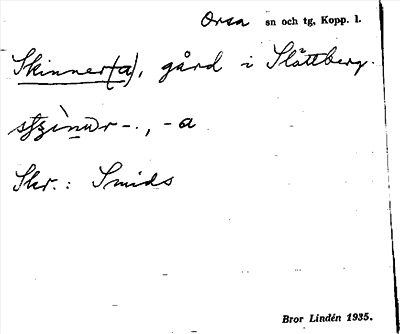 Orsa sn och tg, Kopp. l.
Skinner(a), gård i Slättberg.
-., -a
Skr.: Smids
Bror Lindén 1935.